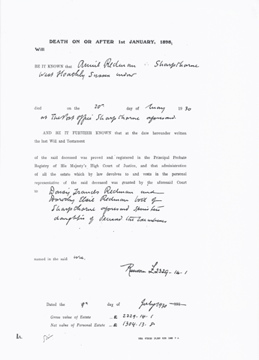 DEATH ON OR AFTER 1st JANUARY, 1898,
Will
BE IT KNOWN that Redman Sharpthorne
West Hoathly Sussex
died on the 20th day of 1930
at The Post Office Sharpthorne aforesaid
AND BE IT FURTHER KNOWN that at the date hereunder written
the last Will and Testament
of the said deceased was proved and registered in the Principal Probate
Registry of His Majesty's High Court of Justice, and that administration
of all the estate which by law devolves to and vests in the personal
representative of the said deceased was granted by the aforesaid Court
to
Francis Redman and
Dorothy Redman both of
Sharpthorne aforesaid
daughters of deceased the
named in the said will
£2229-14-1
Dated the 9th day of July 1930
Gross value of Estate £ 2229-14-1
Net value of Personal Estate £ 1304-13-8